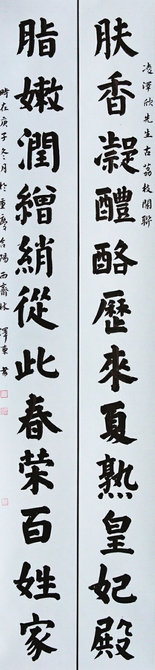 凌澤欣先生古荔枝聯
肤香凝醴酪歷來夏熟皇妃殿
脂嫩潤繒綃從此春荣百姓家
時在庚子冬月於重慶合陽西齋